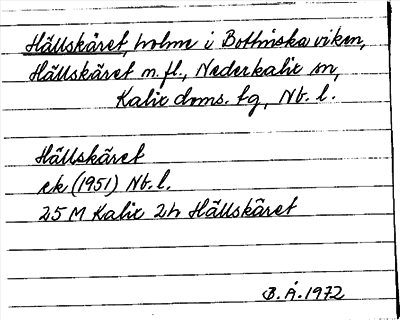 Hällskäret, holme i Bottniska viken,
Hällskäret m.fl., Nederkalix sn,
Kalix doms. tg, Nb. l.
Hällskäret
ek (1951) Nb. l.
25 M Kalix 2h Hällskäret
B. Å. 1972